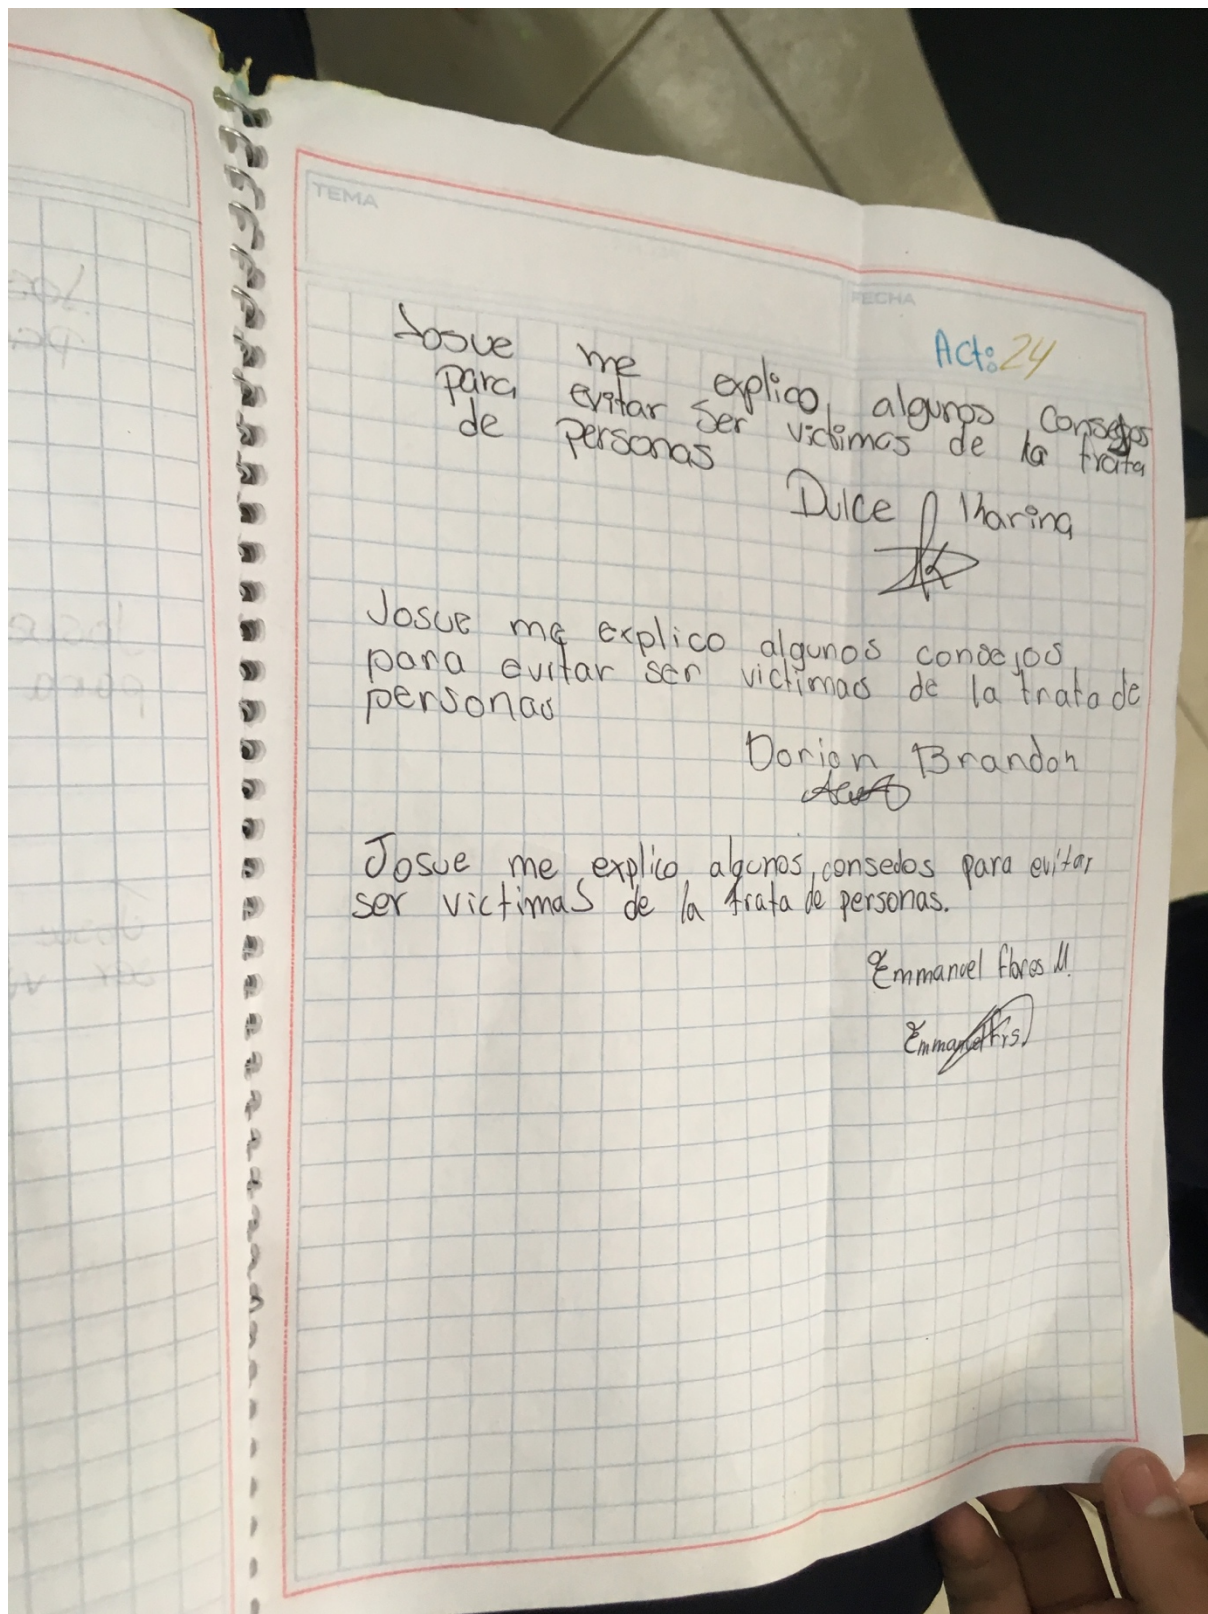 TEMA
FECHA
Act: 24
Josue me explico algunos consejos
para evitar ser victimas de la trata
de personas
Dulce Karina
Josue me explico algunos consejos
para evitar ser victimas de la trata de
personas
Dorian Brandon
Josue me explico algunos consedos para evitar
ser victimas de la trata de personas.
Emmanuel flores M.